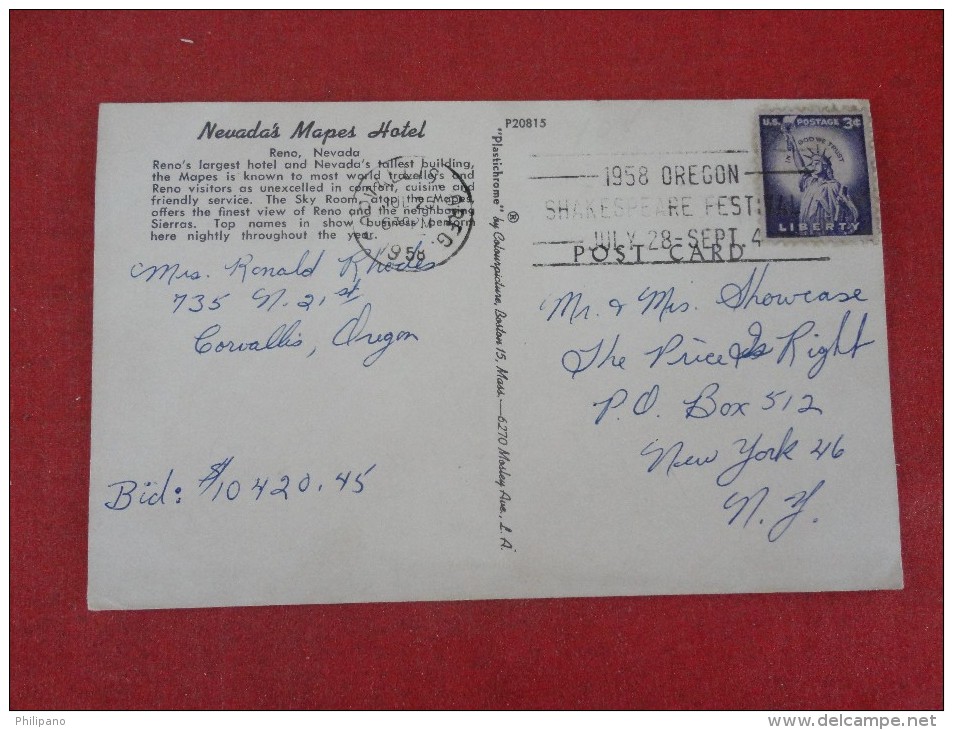 Nevada's Mapes Hotel
Reno, Nevada
Reno's largest hotel and Nevada's tallest building,
the Mapes is known to most world travellers and
Reno visitors as unexcelled in comfort, cuisine and
friendly service. The Sky Room, atop the Mapes,
offers the finest view of Reno and the neighboring
Sierras. Top names in show business perform
here nightly throughout the year.
Mrs. Ronald Rhodes
735 N. 21st
Corvallis, Oregon
Bid: $10420.45
"Plastichrome" ® by Colourpicture, Boston 15, Mass.—6270 Mosley Ave., L.A.
P20815
1958 OREGON
SHAKESPEARE FESTIVAL
JULY 28-SEPT 4
OREG.
1958
U.S. POSTAGE 3¢
IN GOD WE TRUST
LIBERTY
POST CARD
Mr. & Mrs. Showcase
The Price Is Right
P.O. Box 512
New York 46
N.Y.
Philipano
www.delcampe.net